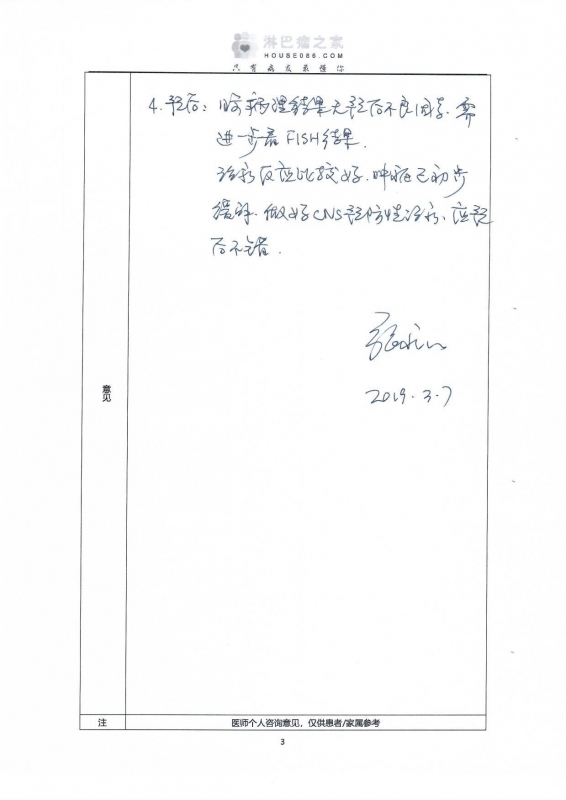 淋巴瘤之家
HOUSE086.COM
只有病友最懂你
4. 预后: 目前病理结果无预后不良因素, 需
进一步看FISH结果.
治疗反应比较好, 肿瘤已初步
缓解. 做好CNS预防性治疗, 应预
后不错.
2019.3.7
意见
注
医师个人咨询意见，仅供患者/家属参考
3